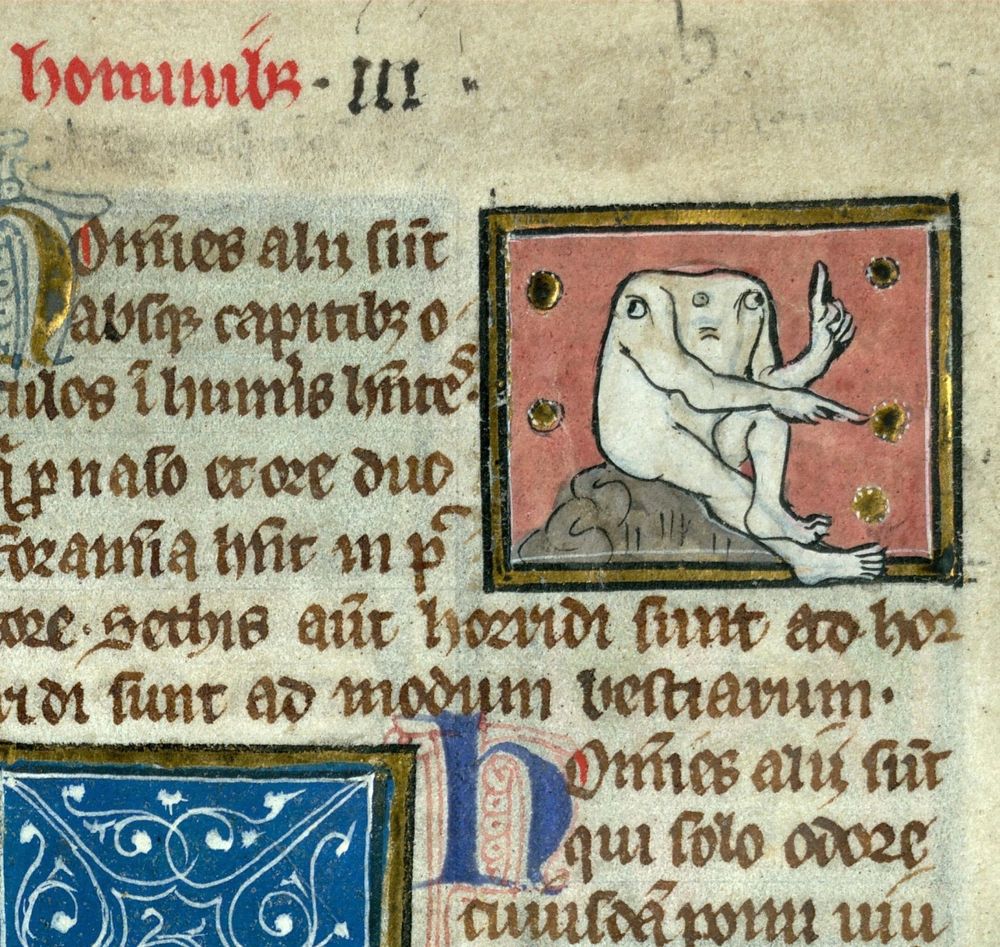 hominibꝫ · III ·
Homīes alii sūt
absqꝫ capitibꝫ o
culos ī humīs hn̄tes.
ꝓ naso et ore duo
foramīa hn̄t in p
ore. Sethis aūt horridi sunt ad hor
ridi sunt ad modum bestiarum.
Homīes alii sūt
qui solo odore
cuiusdā pomi uiu